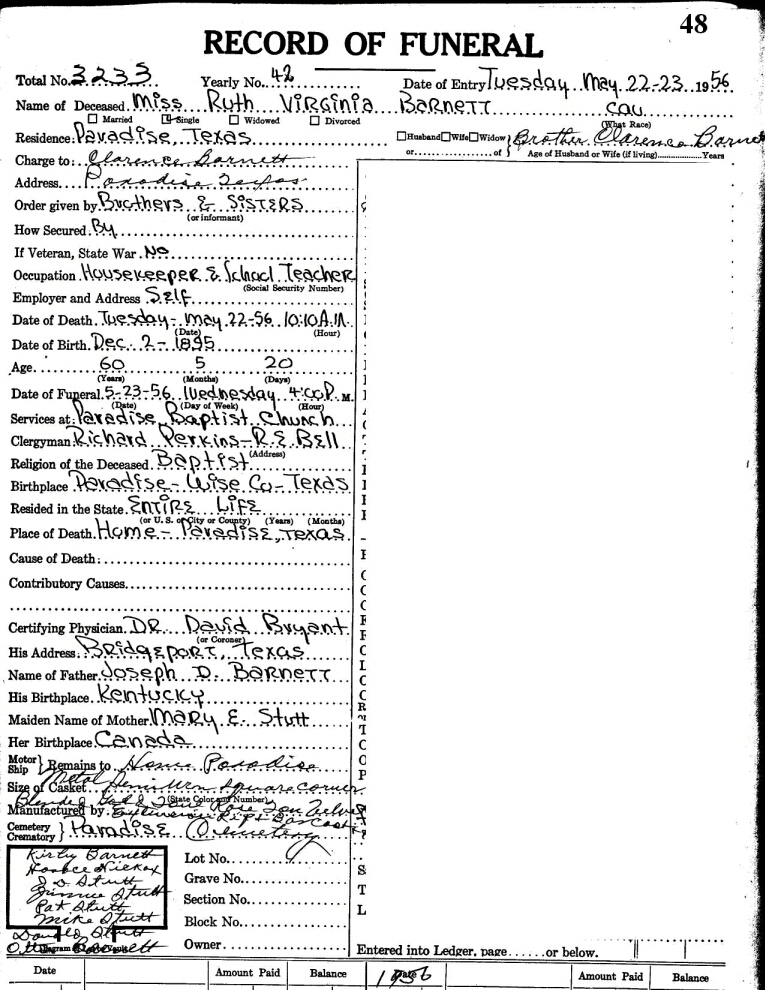 48
RECORD OF FUNERAL
Total No. 3233 Yearly No. 42 Date of Entry Tuesday May 22-23 1956
Name of Deceased Miss Ruth Virginia Barnett Cau
Married Single Widowed Divorced (What Race)
Residence: Paradise, Texas Husband Wife Widow } Brother Clarence Barnett
or of Age of Husband or Wife (if living) Years
Charge to: Clarence Barnett
Address Paradise Texas
Order given by Brothers & Sisters
(or informant)
How Secured. By
If Veteran, State War. No
Occupation Housekeeper & School Teacher
(Social Security Number)
Employer and Address Self
Date of Death. Tuesday - May 22-56 10:10 A.M.
(Date) (Hour)
Date of Birth. Dec. 2 - 1895
Age 60 5 20
(Years) (Months) (Days)
Date of Funeral 5-23-56 Wednesday 4:00 P. M.
(Date) (Day of Week) (Hour)
Services at: Paradise Baptist Church
Clergyman Richard Perkins - R.E. Bell
(Address)
Religion of the Deceased Baptist
Birthplace Paradise - Wise Co - Texas
Resided in the State. Entire Life
(or U. S. or City or County) (Years) (Months)
Place of Death. Home - Paradise, Texas
Cause of Death:
Contributory Causes
Certifying Physician. DR. David Bryant
(or Coroner)
His Address: Bridgeport, Texas
Name of Father Joseph D. Barnett
His Birthplace Kentucky
Maiden Name of Mother Mary E. Stutt
Her Birthplace Canada
Motor Ship } Remains to Home Paradise
Size of Casket Metal square corner
(State Color and Number)
Manufactured by
Cemetery Crematory } Paradise Cemetery
Kirby Barnett
Horace Hickox
J.D. Stutt
Jimmie Stutt
Pat Stutt
Mike Stutt
Donald Stutt
Otto Barnett
Lot No.
Grave No.
Section No.
Block No.
Owner
Entered into Ledger, page or below.
Date Amount Paid Balance 1956 Amount Paid Balance